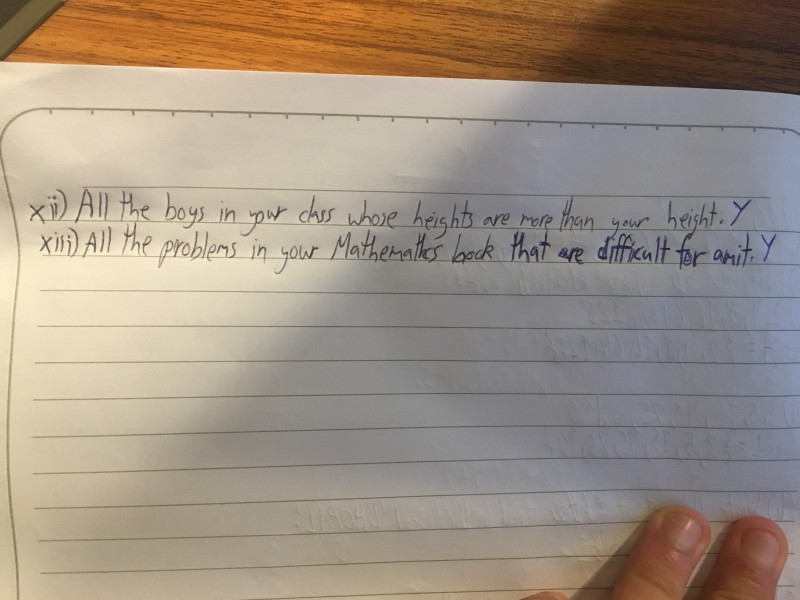 xii) All the boys in your class whose heights are more than your height. Y
xiii) All the problems in your Mathematics book that are difficult for amit. Y